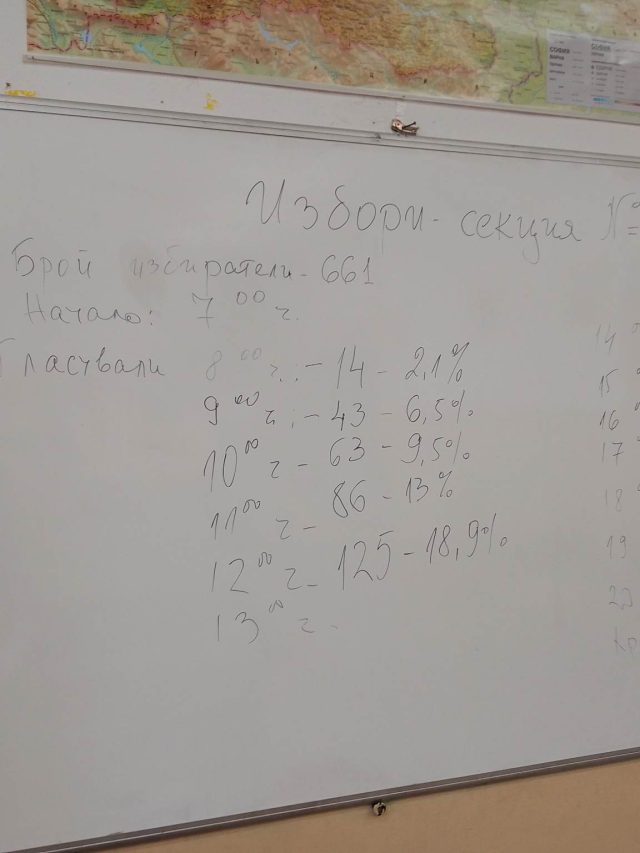 Избори - секция №
Брой избиратели - 661
Начало: 7 00 ч.
Гласували 8 00 ч.: - 14 - 2,1%
9 00 ч: - 43 - 6,5%
10 00 ч - 63 - 9,5%
11 00 ч - 86 - 13%
12 00 ч - 125 - 18,9%
13 00 ч -
14
15
16
17
18
19
Кр